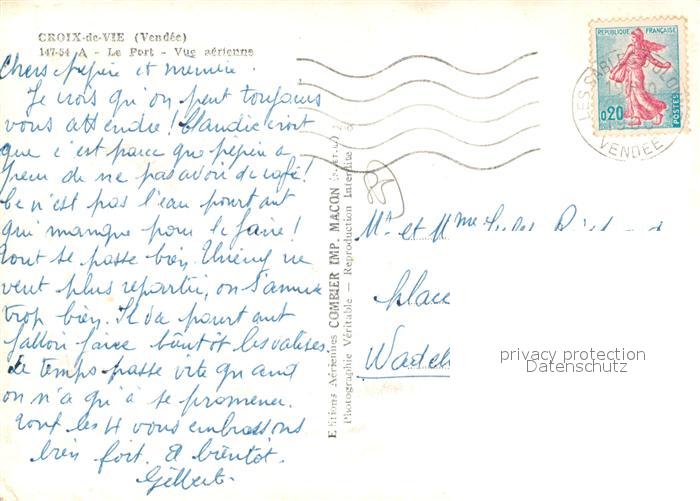 CROIX-de-VIE (Vendée)
147-54 A - Le Port - Vue aérienne
Chers pépère et mémère.
Je crois qu'on peut toujours
vous attendre! Claudie croit
que c'est parce que pépère a
peur de ne pas avoir de café!
Ce n'est pas l'eau pourtant
qui manque pour le faire!
Tout se passe bien. Thierry ne
veut plus repartir, on s'amuse
trop bien. Il va pourtant
falloir faire bientôt les valises.
Le temps passe vite quand
on n'a qu'à se promener.
Tout les 4 vous embrassons
bien fort. A bientôt.
Gilbert.
Editions Aériennes COMBIER IMP. MACON
Photographie Véritable - Reproduction Interdite
REPUBLIQUE FRANÇAISE
0,20
POSTES
LES SABLES D'OLONNE
VENDEE
85
Mr et Mme
place
privacy protection
Datenschutz